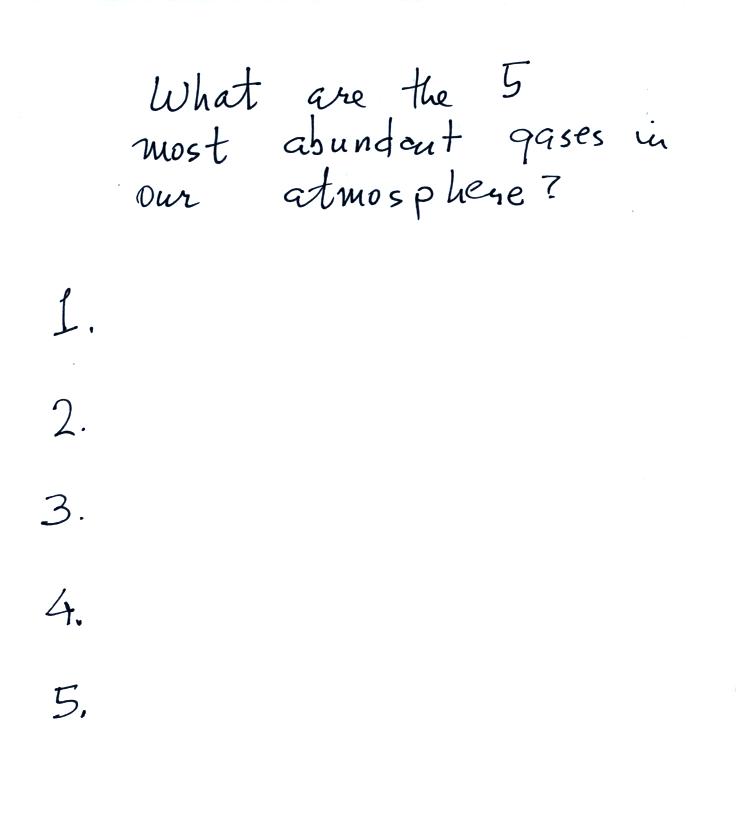 What are the 5
most abundant gases in
our atmosphere?
1.
2.
3.
4.
5.